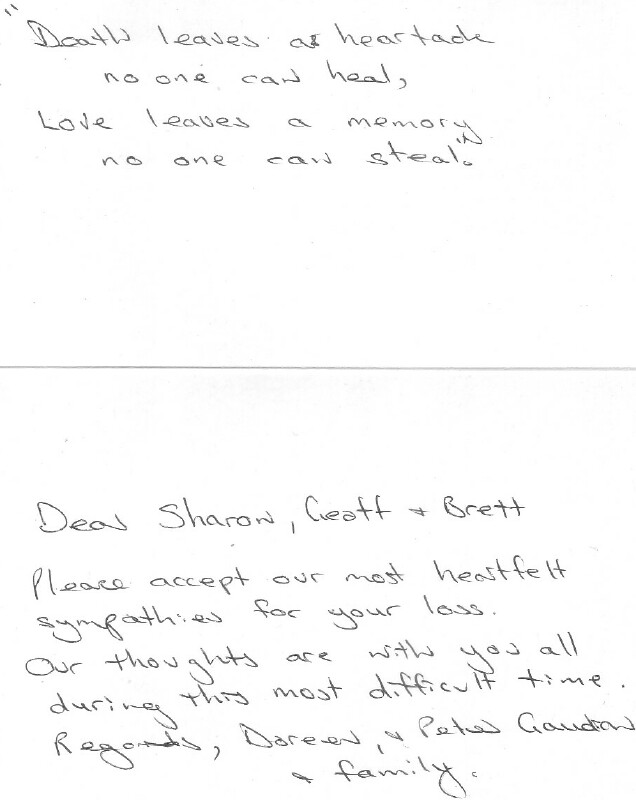 "Death leaves a heartache
no one can heal,
Love leaves a memory
no one can steal."
Dear Sharon, Geoff + Brett
Please accept our most heartfelt
sympathies for your loss.
Our thoughts are with you all
during this most difficult time.
Regards, Doreen, + Peter
+ family.